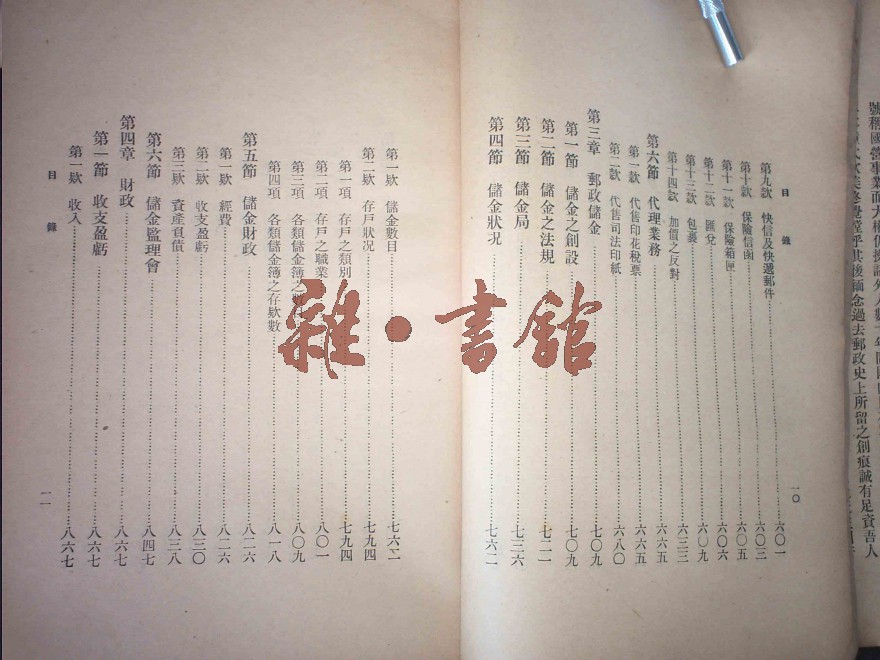 目錄
第九款 快信及快遞郵件 六〇一
第十款 保險信函 六〇三
第十一款 保險箱匣 六〇五
第十二款 匯兌 六〇六
第十三款 包裹 六〇九
第十四款 加價之反對 六三二
第六節 代理業務 六六五
第一款 代售印花稅票 六六五
第二款 代售司法印紙 六八〇
第三章 郵政儲金 七〇九
第一節 儲金之創設 七〇九
第二節 儲金之法規 七二一
第三節 儲金局 七三六
第四節 儲金狀況 七六二
一〇
第一款 儲金數目 七六二
第二款 存戶狀況 七九四
第一項 存戶之類別 七九四
第二項 存戶之職業 八〇一
第三項 各類儲金簿之數目 八〇九
第四項 各類儲金簿之存款數 八一八
第五節 儲金財政 八二六
第一款 經費 八二六
第二款 收支盈虧 八三〇
第三款 資產負債 八三八
第六節 儲金監理會 八四七
第四章 財政 八六七
第一節 收支盈虧 八六七
第一款 收入 八六七
目錄
一一
雜·書館
過去郵政史上所留之創痕誠有足資吾人